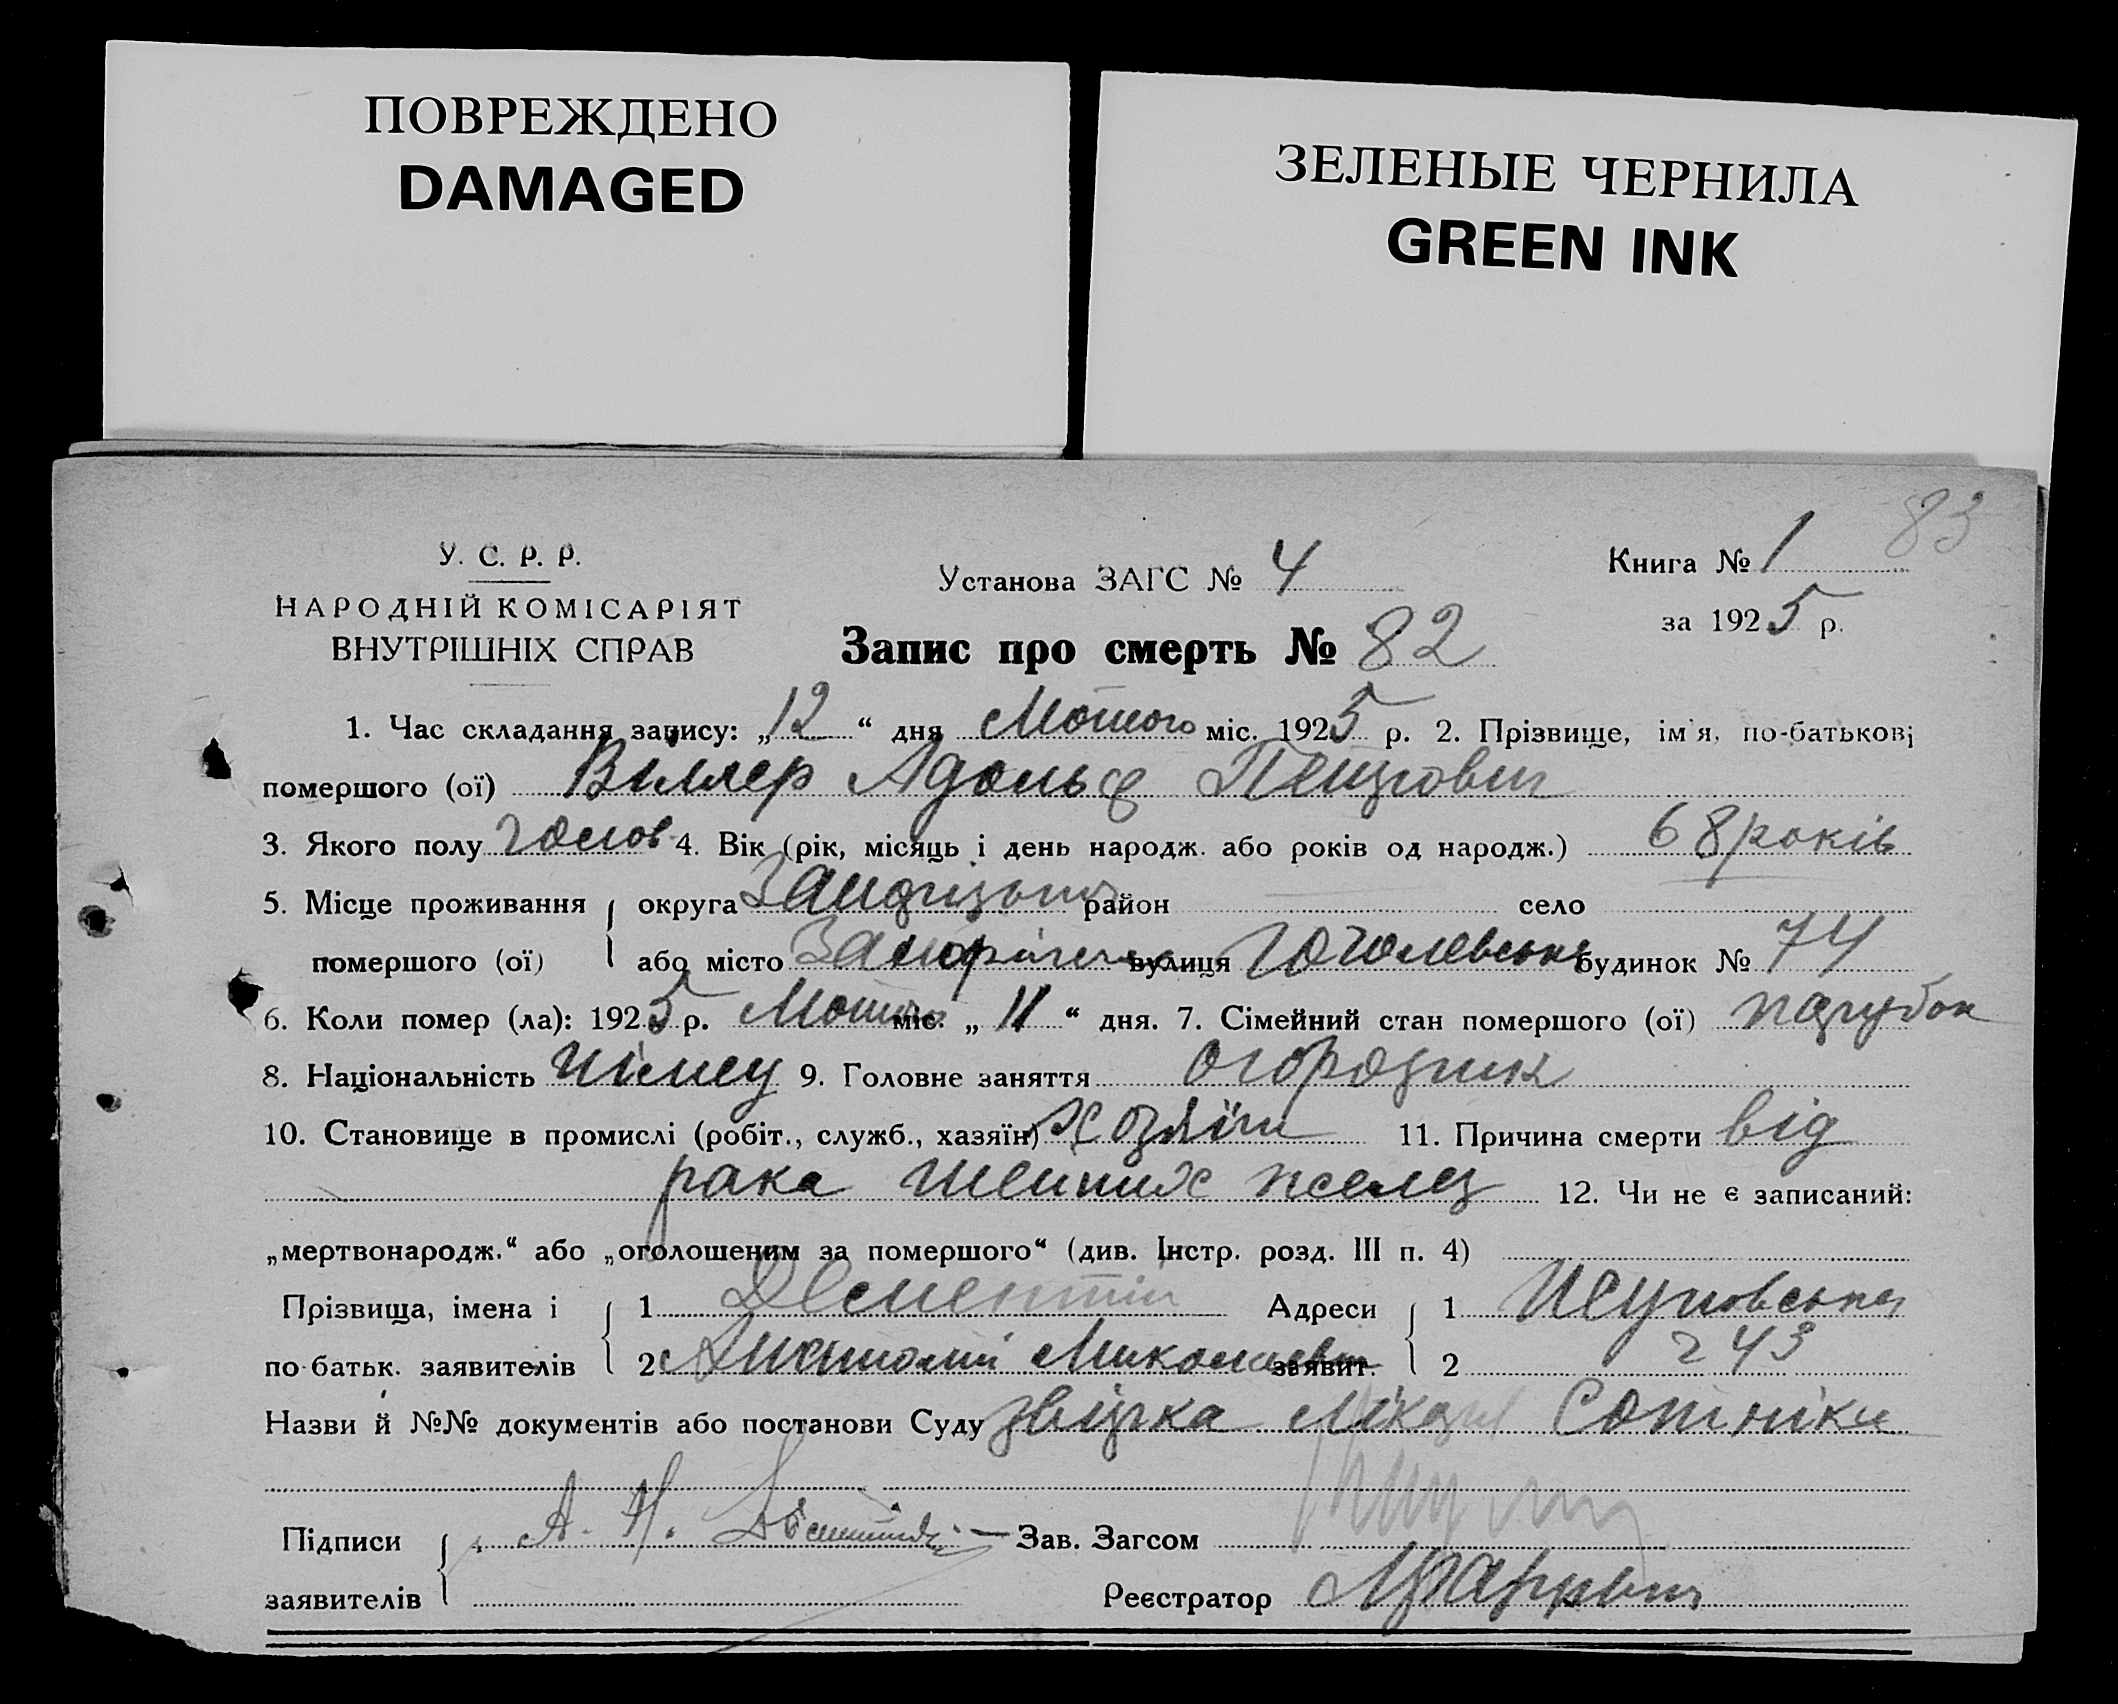 ПОВРЕЖДЕНО
DAMAGED
ЗЕЛЕНЫЕ ЧЕРНИЛА
GREEN INK
83
У. С. Р. Р.
НАРОДНІЙ КОМІСАРІЯТ
ВНУТРІШНІХ СПРАВ
Установа ЗАГС № 4
Книга № 1
за 1925 р.
Запис про смерть № 82
1. Час складання запису: „12“ дня Лютого міс. 1925 р. 2. Прізвище, ім'я, по-батькові
помершого (ої) Віллер Адольф
3. Якого полу чолов 4. Вік (рік, місяць і день народж. або років од народж.) 68 років
5. Місце проживання округа район село
помершого (ої) або місто вулиця Гоголевська будинок № 74
6. Коли помер (ла): 1925 р. Лютого міс. „11“ дня. 7. Сімейний стан помершого (ої) парубок
8. Національність німец 9. Головне заняття огородник
10. Становище в промислі (робіт., служб., хазяїн) Хозяїн 11. Причина смерти від
рака желез 12. Чи не є записаний:
„мертвонародж.“ або „оголошеним за помершого“ (див. Інстр. розд. III п. 4)
Прізвища, імена і 1 Дементій Адреси 1
по-батьк. заявителів 2 Анатолій Миколаевич заявит. 2 243
Назви й №№ документів або постанови Суду звістка лікаря Сотніка
Підписи А. Н. Зав. Загсом
заявителів Реєстратор